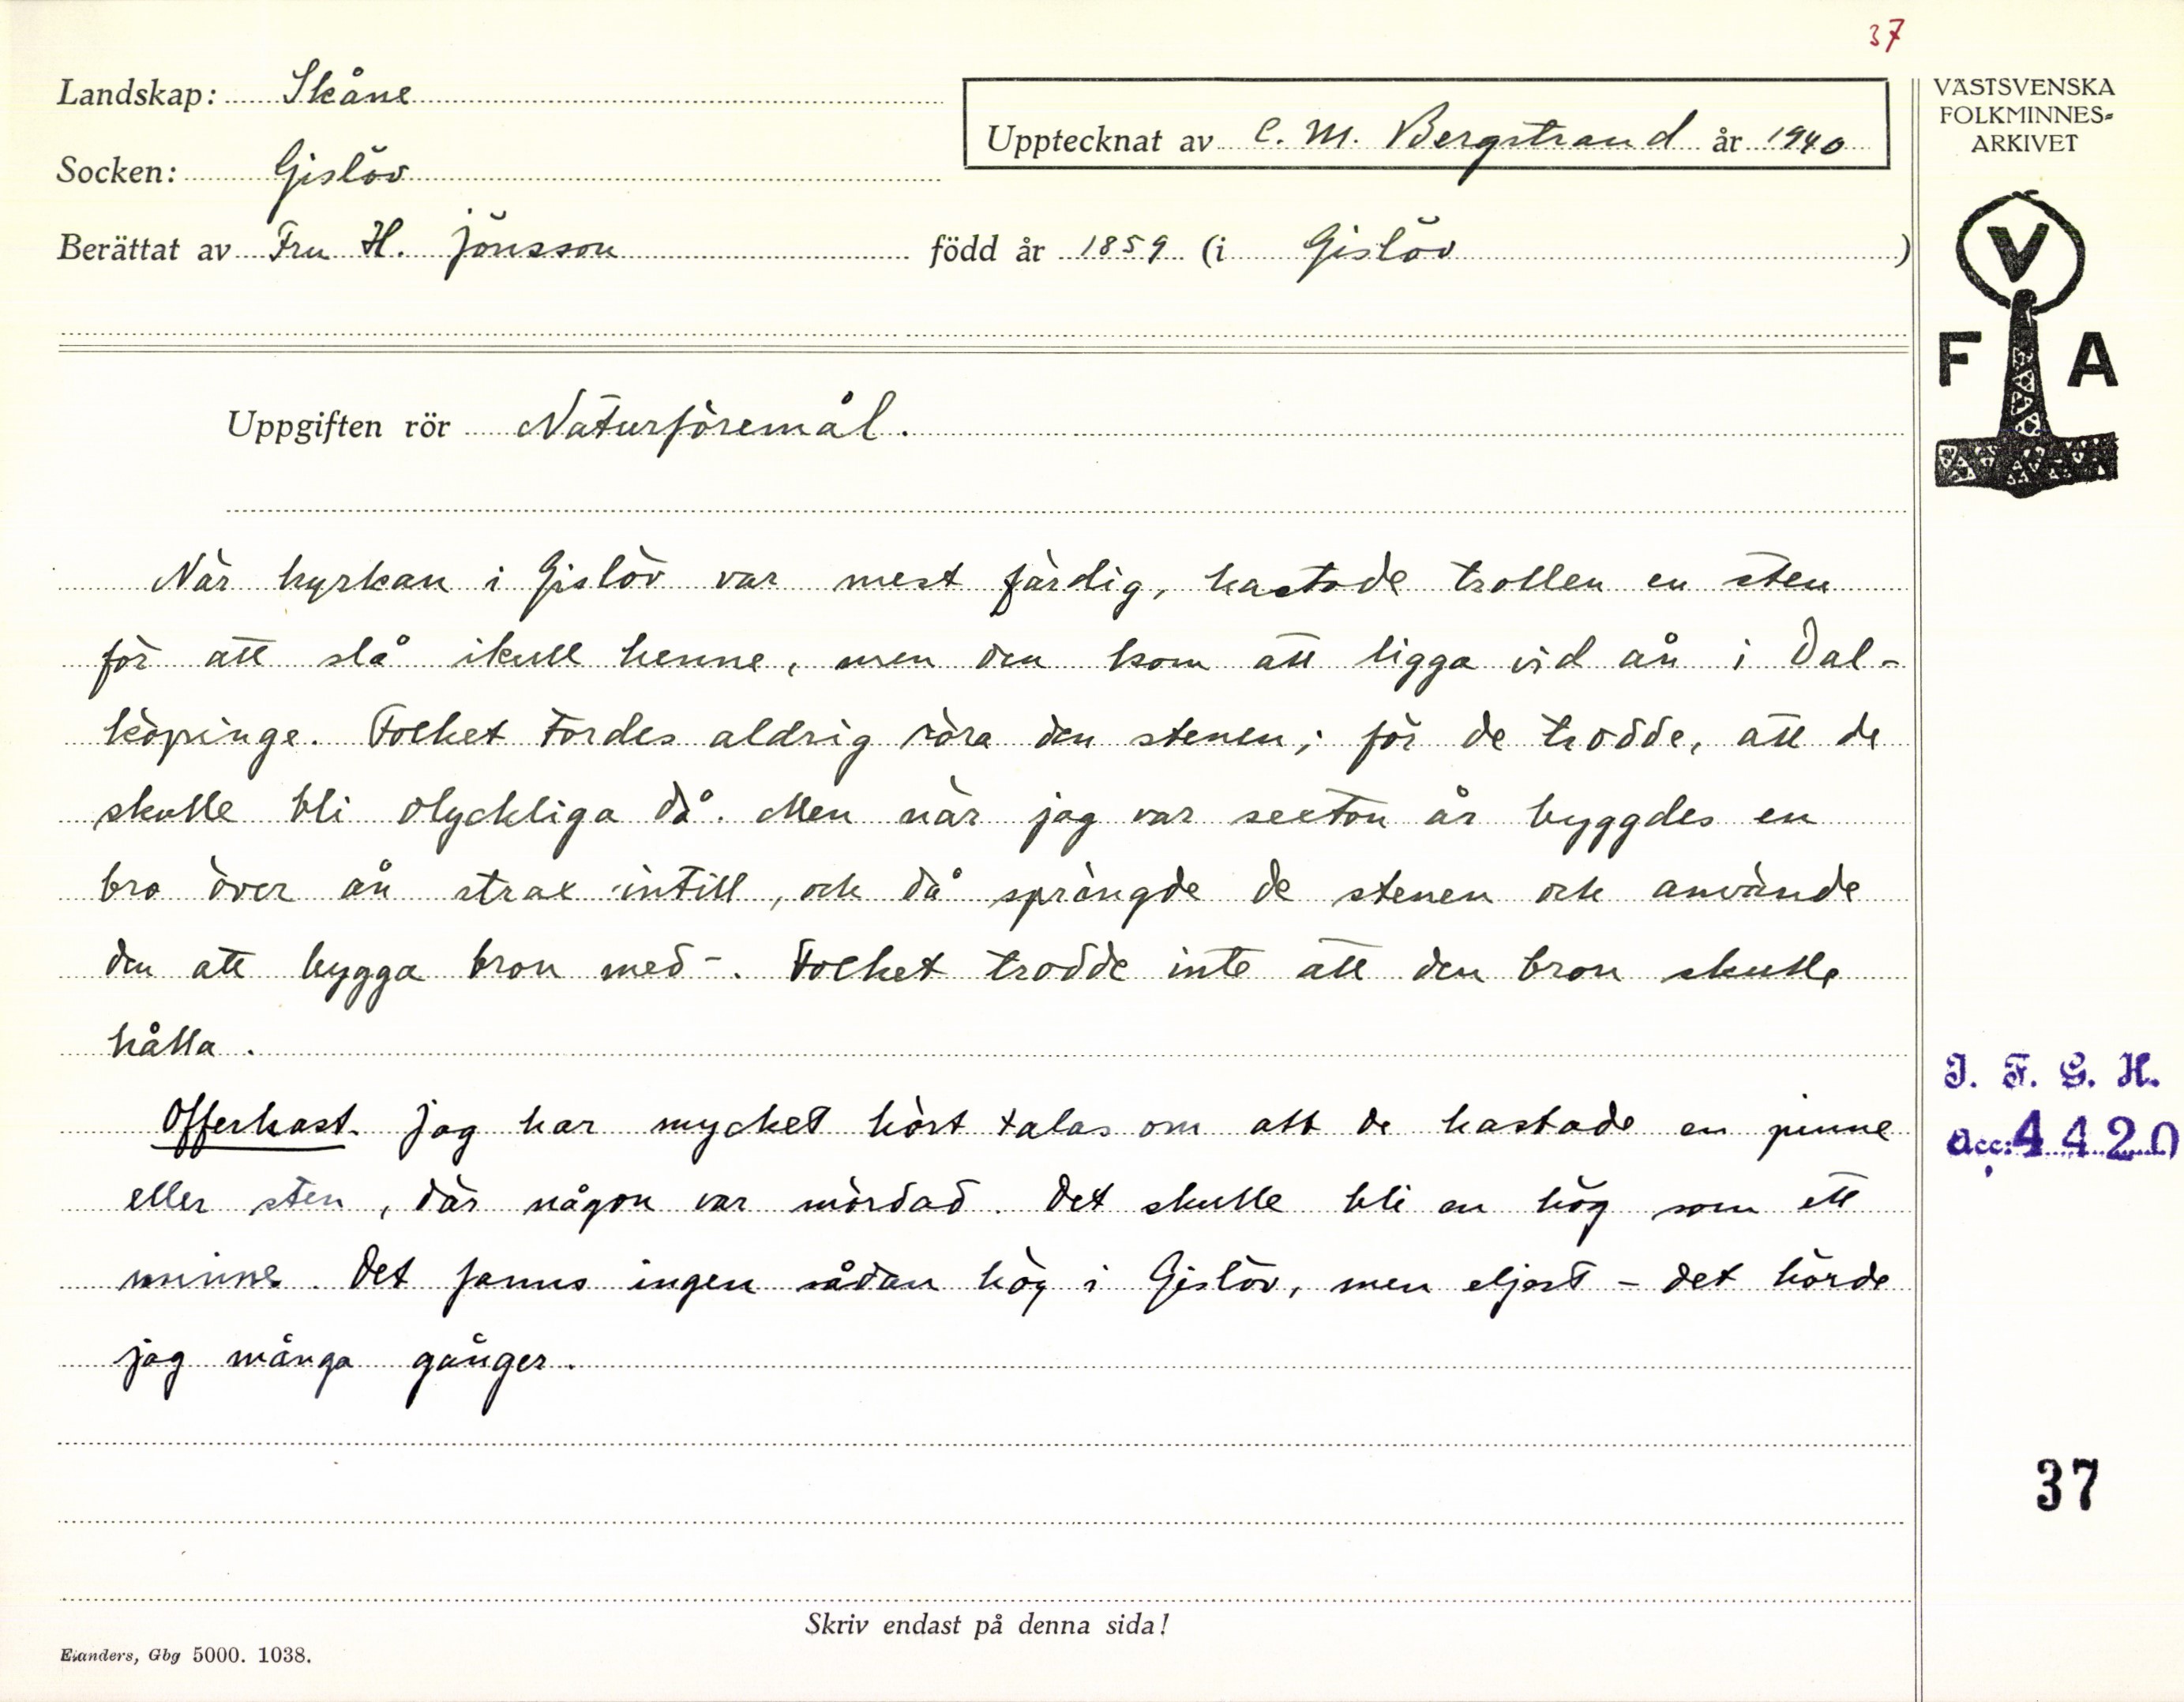 37
Landskap: Skåne
Upptecknat av C. M. Bergstrand år 1940
VÄSTSVENSKA
FOLKMINNES=
ARKIVET
Socken: Gislöv
Berättat av Fru H. Jönsson född år 1859 (i Gislöv)
V
F A
Uppgiften rör Naturföremål.
När kyrkan i Gislöv var mest färdig, kastade trollen en sten
för att slå ikull henne, men den kom att ligga vid ån i Dal-
köpinge. Folket tordes aldrig röra den stenen; för de trodde, att de
skulle bli olyckliga då. Men när jag var sexton år byggdes en
bro över ån strax intill, och då sprängde de stenen och använde
den att bygga bron med-. Folket trodde inte att den bron skulle
hålla.
Offerkast. Jag har mycket hört talas om att de kastade en pinne
eller sten, där någon var mördad. Det skulle bli en hög som ett
minne. Det fanns ingen sådan hög i Gislöv, men eljest - det hörde
jag många gånger.
I. F. G. H.
Acc: 4420
37
Skriv endast på denna sida!
Elanders, Gbg 5000. 1038.